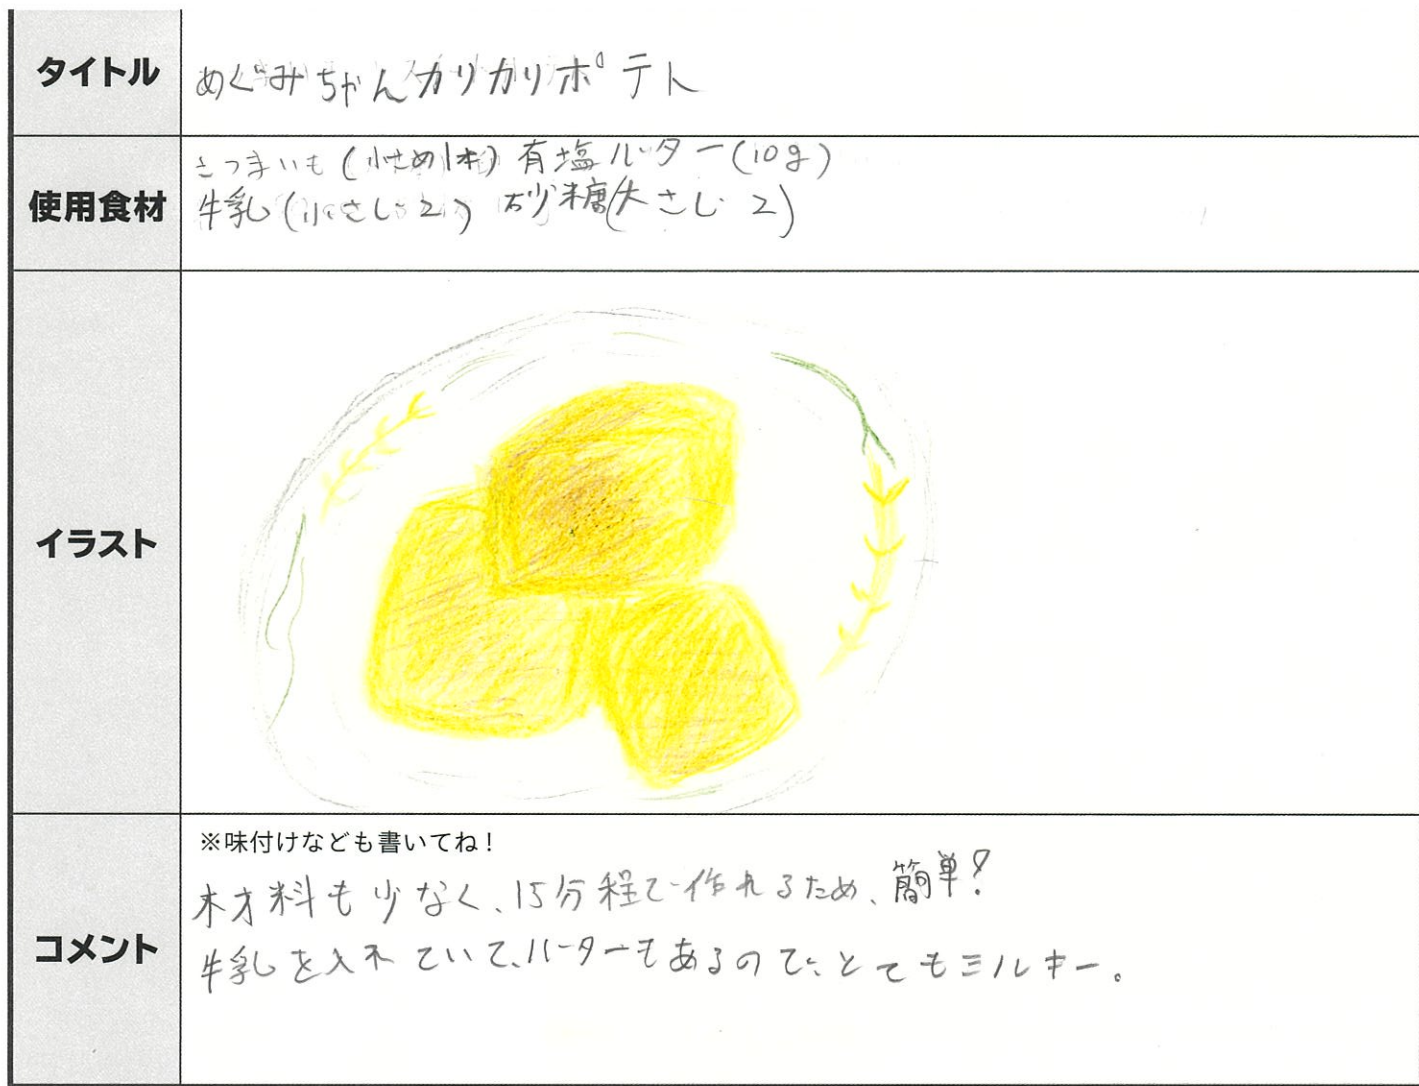 タイトル
めぐみちゃんカリカリポテト
使用食材
さつまいも(小さめ1本) 有塩バター(10g)
牛乳(小さじ2) 砂糖(大さじ2)
イラスト
コメント
※味付けなども書いてね!
材料も少なく、15分程で作れるため、簡単!
牛乳を入れていて、バターもあるので、とてもミルキー。